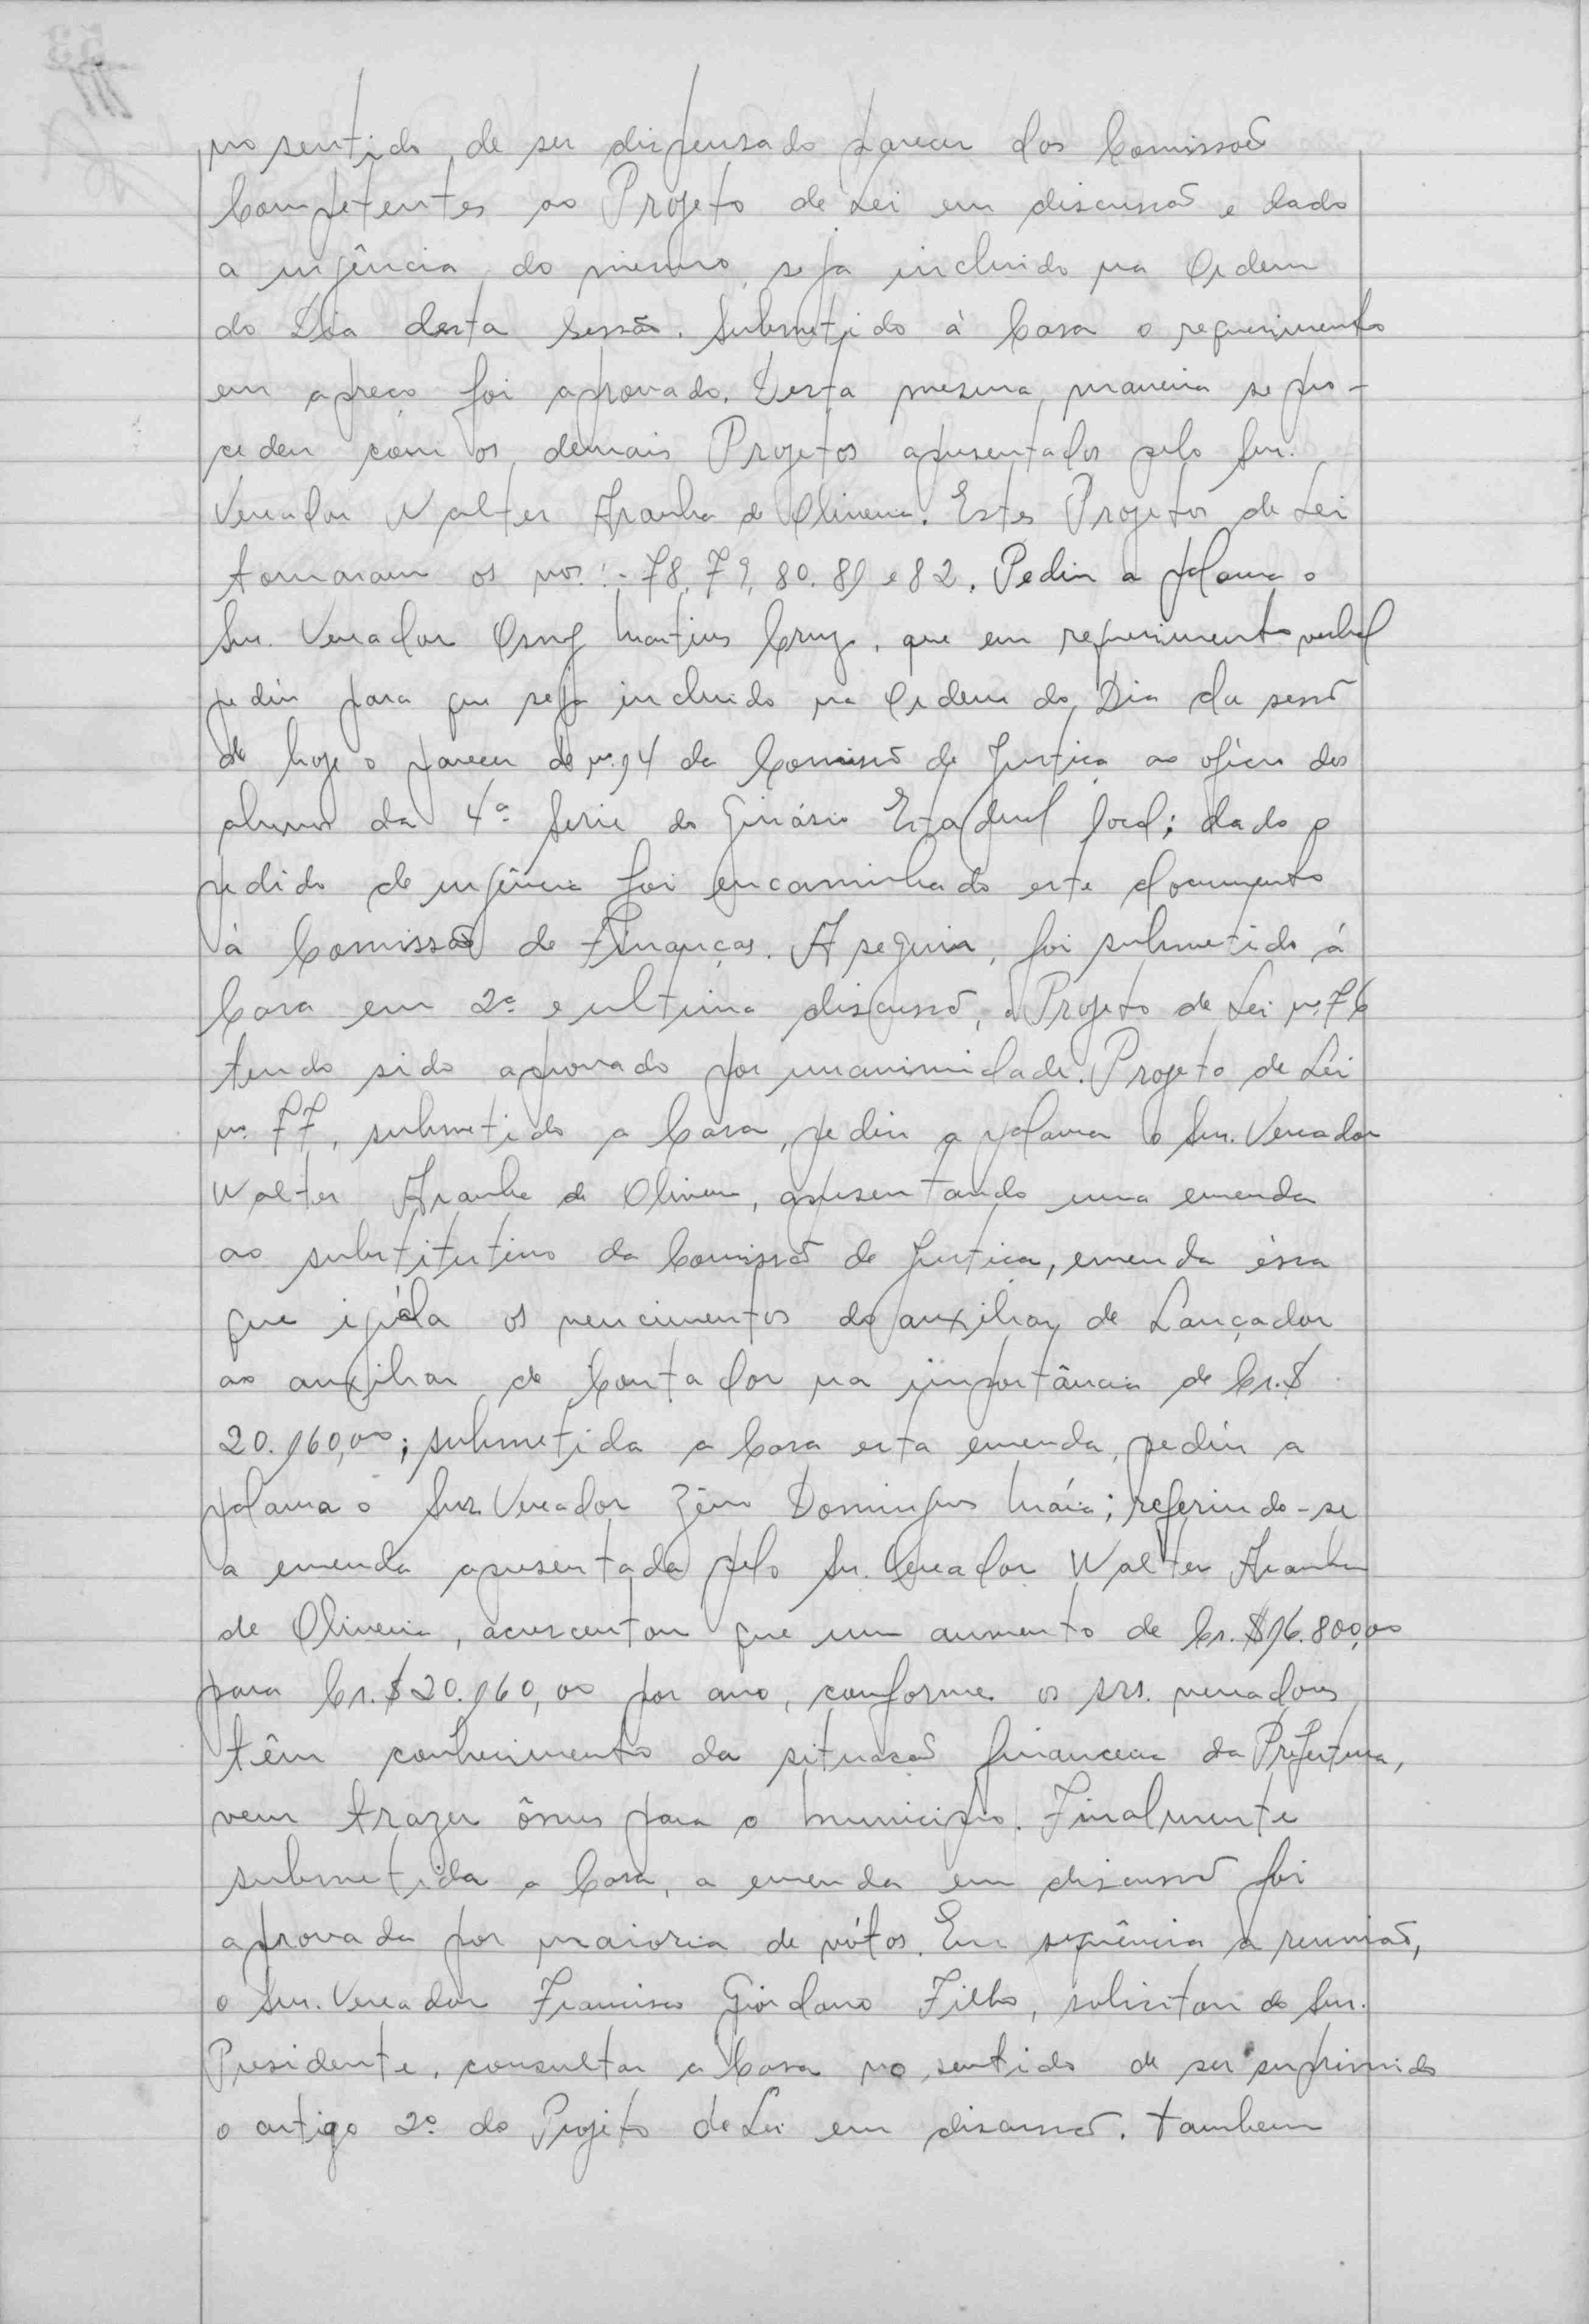 no sentido, de ser dispensado parecer das Comissões
Competentes ao Projeto de Lei em discussão e dado
a urgência do mesmo, seja incluido na Ordem
do Dia desta Sessão. Submetido à Casa o requerimento
em apreço foi aprovado. Desta mesma maneira se pro-
cedeu com os demais Projetos apresentados pelo Snr.
Vereador Walter Aranha de Oliveira. Estes Projetos de Lei
tomaram os nos. :- 78, 79, 80, 81 e 82. Pediu a palavra o
Snr. Vereador Osny Martins Cruz, que em requerimento verbal
pediu para que seja incluido na Ordem do Dia da sessão
de hoje o parecer de nº 14 da Comissão de Justiça ao ofício dos
alunos da 4ª Serie do Ginásio Estadual local; dado o
pedido de urgência foi encaminhado este documento
à Comissão de Finanças. A seguir, foi submetido à
Casa em 2ª e ultima discussão, o Projeto de Lei nº 76
tendo sido aprovado por unanimidade. Projeto de Lei
nº 77, submetido a Casa, pediu a palavra o Snr. Vereador
Walter Aranha de Oliveira, apresentando uma emenda
ao substitutivo da Comissão de Justiça, emenda éssa
que iguála os vencimentos do auxiliar de Lançador
ao auxiliar de Contador na importância de Cr.$
20.160,00; submetida a Casa esta emenda, pediu a
palavra o Snr. Vereador Zéno Domingues Maia; referindo-se
a emenda apresentada pelo Sr. Vereador Walter Aranha
de Oliveira, acrescentou que um aumento de Cr.$16.800,00
para Cr.$20.160,00 por ano, conforme os srs. vereadores
têm conhecimento da situação financeira da Prefeitura,
vem trazer ônus para o município. Finalmente
submetida a Casa, a emenda em discussão foi
aprovada por maioria de vótos. Em sequência a reunião,
o Snr. Vereador Francisco Giordano Filho, solicitou do Snr.
Presidente, consultar a Casa no sentido de ser suprimido
o artigo 2º do Projeto de Lei em discussão. Tambem